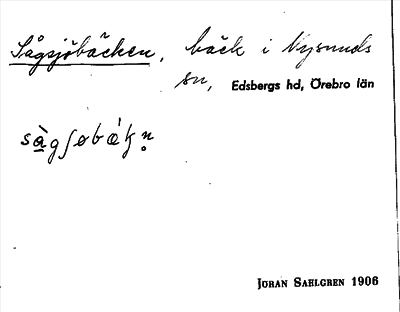 Sågsjöbäcken, bäck i Nysunds
sn, Edsbergs hd, Örebro län
sàgʃøbǽkn̥
JÖRAN SAHLGREN 1906